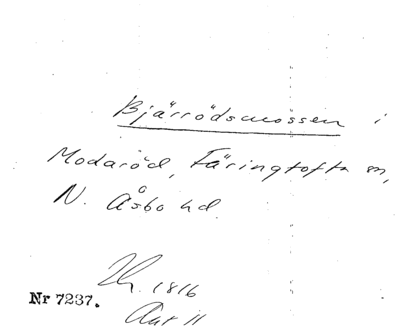 Bjärrödsmossen i
Modaröd, Färingtofta sn,
N. Åsbo hd.
1816
Nr 7237.